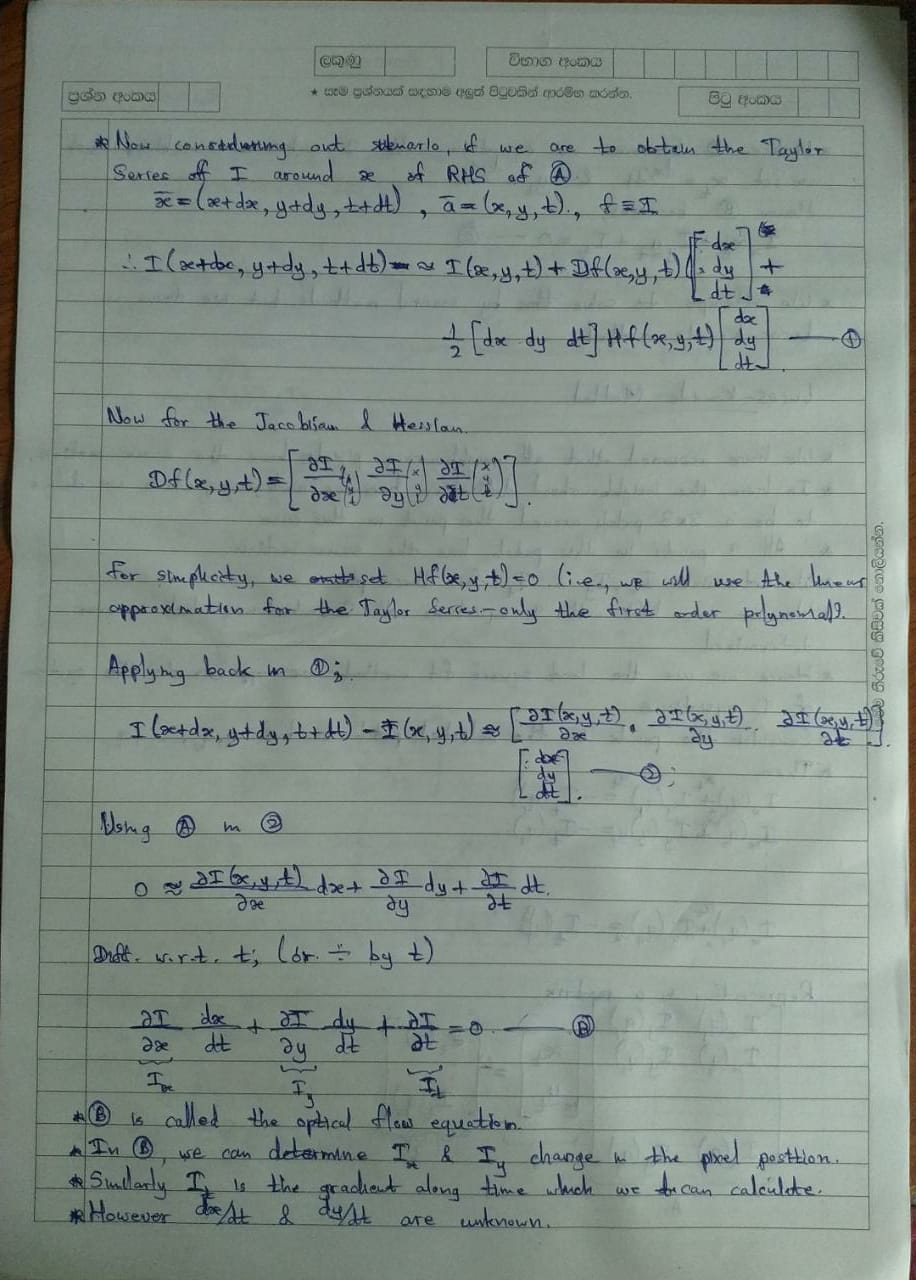 ලකුණු
විභාග අංකය
ප්‍රශ්න අංකය
★ සෑම ප්‍රශ්නයක් සඳහාම අලුත් පිටුවකින් ආරම්භ කරන්න.
පිටු අංකය
* Now considering out scenario, if we are to obtain the Taylor
Series off I around x of RHS of Ⓐ
x̄ = (x+dx, y+dy, t+dt) , ā = (x, y, t)., f ≡ I
∴ I(x+dx, y+dy, t+dt) ≈ I(x,y,t) + Df(x,y,t) [dx dy dt] +
1/2 [dx dy dt] Hf(x,y,t) [dx dy dt] — ①
Now for the Jacobian & Hessian.
Df(x,y,t) = [∂I/∂x (x y t) ∂I/∂y (x y t) ∂I/∂t (x y t)].
For simplicity, we set Hf(x,y,t)=0 (i.e., we will use the linear
approximation for the Taylor Series – only the first order polynomial).
Applying back in ①;
I(x+dx, y+dy, t+dt) – I(x,y,t) ≈ [∂I(x,y,t)/∂x . ∂I(x,y,t)/∂y . ∂I(x,y,t)/∂t].
[dx dy dt]. — ②;
Using Ⓐ in ②
0 ≈ ∂I(x,y,t)/∂x dx + ∂I/∂y dy + ∂I/∂t dt.
Diff. w.r.t. t; (or ÷ by t)
∂I/∂x dx/dt + ∂I/∂y dy/dt + ∂I/∂t = 0 — Ⓑ
Ix Iy It
* Ⓑ is called the optical flow equation.
* In Ⓑ, we can determine Ix & Iy change in the pixel position.
* Similarly It is the gradient along time which we can calculate.
* However dx/dt & dy/dt are unknown.